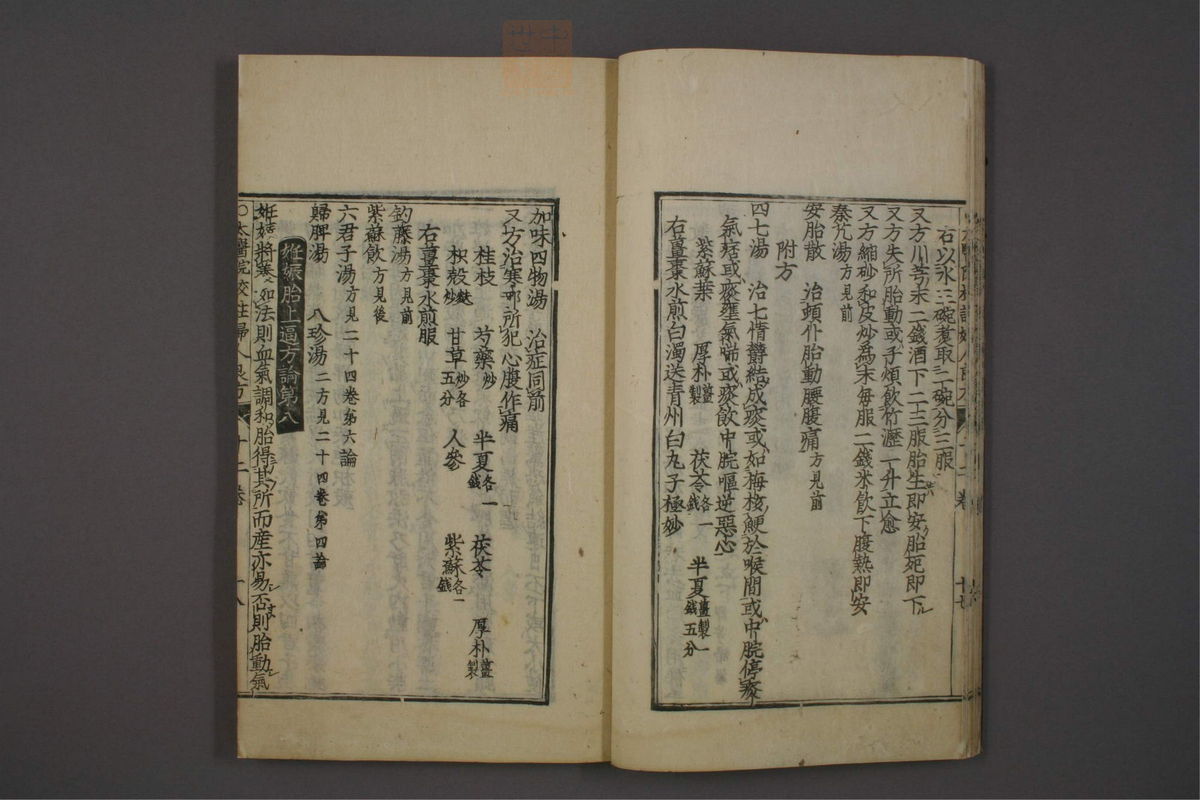 右以水三碗煑取二碗分三服
又方川芎末二錢酒下二三服胎生即安胎死即下
又方失所胎動或子煩飲竹瀝一升立愈
又方縮砂和皮炒爲末每服二錢米飲下腹熱即安
秦艽湯方見前
安胎散 治頓仆胎動腰腹痛方見前
附方
四七湯 治七情欝結成痰或如梅核鯁於喉間或中脘停痰
氣痞或痰壅氣喘或痰飲中脘嘔逆惡心
紫蘇葉 厚朴薑製 茯苓各一錢 半夏薑製一錢五分
右薑棗水煎白濁送青州白丸子極妙
加味四物湯 治症同前
又方治寒邪所犯心腹作痛
桂枝 芍藥炒 半夏各一錢 茯苓 厚朴薑製
枳殻麩炒 甘草炒各五分 人參 紫蘇各一錢
右薑棗水煎服
釣藤湯方見前
紫蘇飲方見後
六君子湯方見二十四卷第六論
歸脾湯 八珍湯二方見二十四卷第四論
妊娠胎上逼方論第八
妊娠將養如法則血氣調和胎得其所而産亦易否則胎動氣
○太醫院校註婦人良方 十二卷 十八